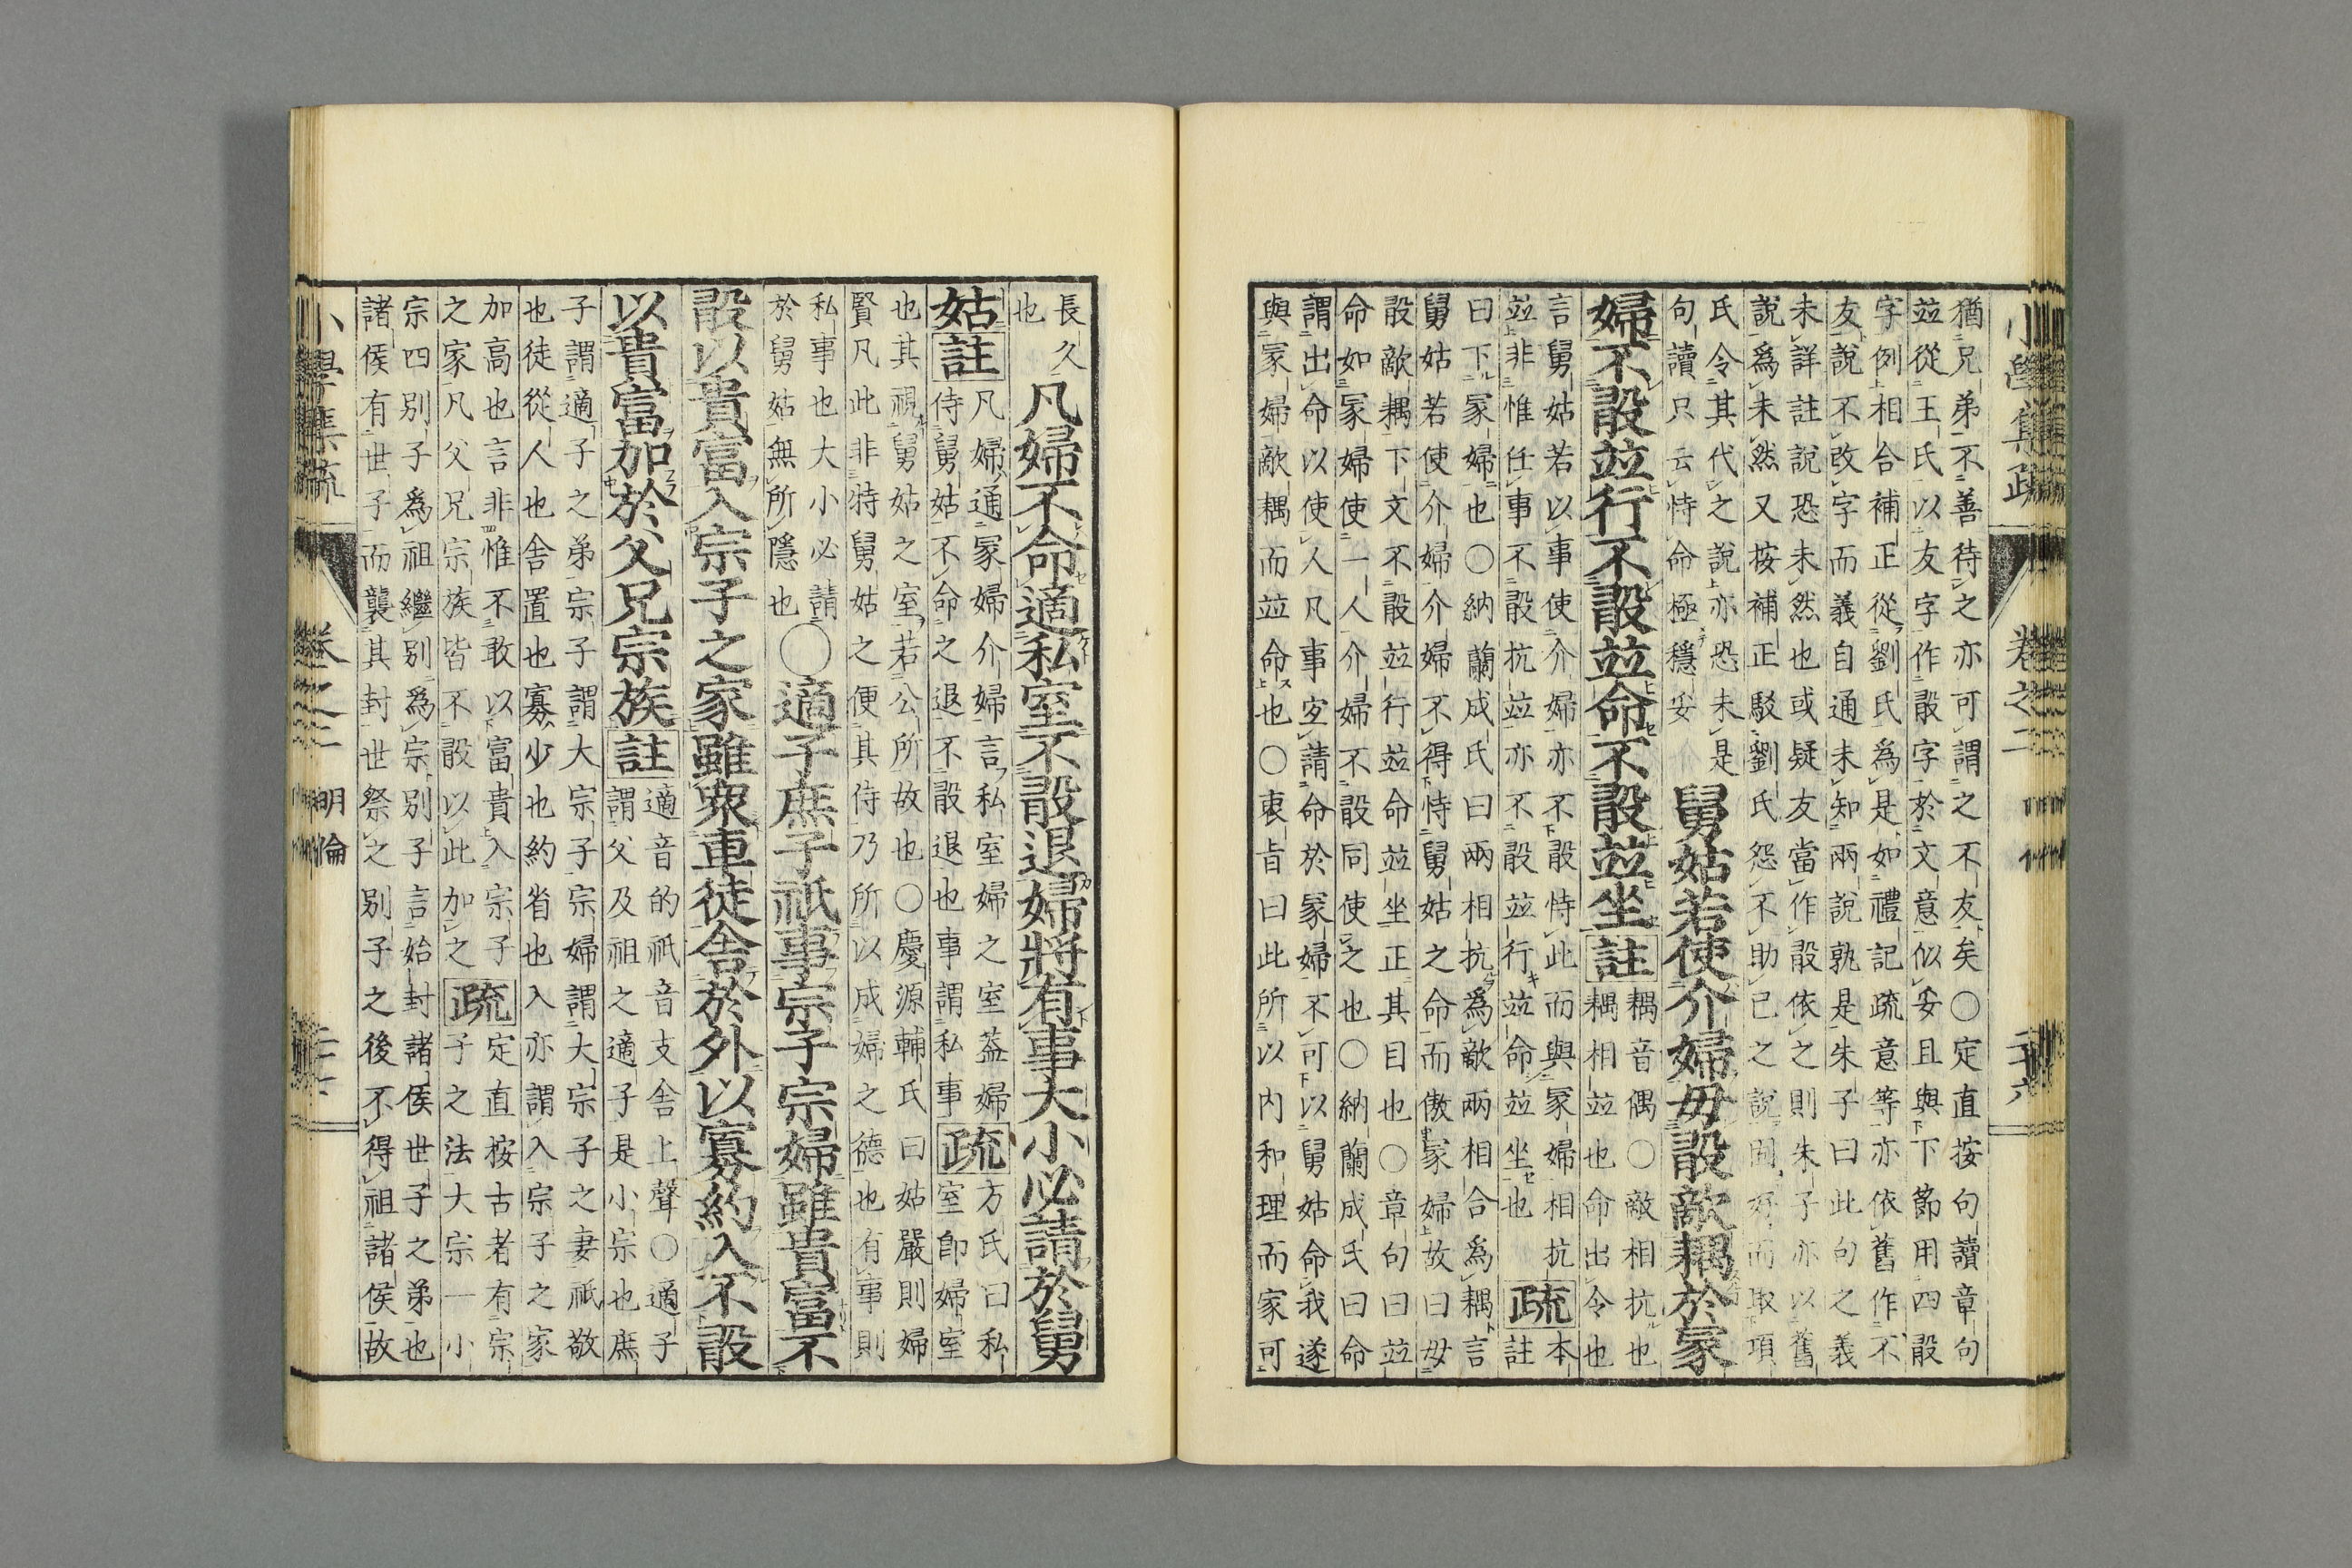 猶兄弟不善待之亦可謂之不友矣○定直按句讀章句
竝從王氏以友字作敢字於文意似安且與下節用四敢
字例相合補正從劉氏為是如禮記疏意等亦依舊作不
友說不改字而義自通未知兩說孰是朱子曰此句之義
未詳註說恐未然也或疑友當作敢依之則朱子亦以舊
說為未然又按補正駁劉氏怨不助已之說固好而取項
氏令其代之說亦恐未是
句讀只云恃命極穩安
舅姑若使介婦毋敢敵耦於冢
婦不敢竝行不敢竝命不敢竝坐
註
耦音偶○敵相抗也
耦相竝也命出令也
言舅姑若以事使介婦亦不敢恃此而與冢婦相抗
竝非惟任事不敢抗竝亦不敢竝行竝命竝坐也
疏
本
註
曰下冢婦也○納蘭成氏曰兩相抗為敵兩相合為耦言
舅姑若使介婦介婦不得恃舅姑之命而傲冢婦故曰毋
敢敵耦下文不敢竝行竝命竝坐正其目也○章句曰竝
命如冢婦使一人介婦不敢同使之也○納蘭成氏曰命
謂出命以使人凡事宐請命於冢婦不可以舅姑命我遂
與冢婦敵耦而竝命也○衷旨曰此所以內和理而家可
小學集疏
卷之二
二十六
長久
也
凡婦不命適私室不敢退婦將有事大小必請於舅
姑
註
凡婦通冢婦介婦言私室婦之室蓋婦
侍舅姑不命之退不敢退也事謂私事
疏
方氏曰私
室卽婦室
也其視舅姑之室若公所故也○慶源輔氏曰姑嚴則婦
賢凡此非特舅姑之便其侍乃所以成婦之德也有事則
私事也大小必請
於舅姑無所隱也
○適子庶子祇事宗子宗婦雖貴富不
敢以貴富入宗子之家雖衆車徒舍於外以寡約入不敢
以貴富加於父兄宗族
註
適音的祇音支舍上聲○適子
謂父及祖之適子是小宗也庶
子謂適子之弟宗子謂大宗子宗婦謂大宗子之妻祇敬
也徒從人也舍置也寡少也約省也入亦謂入宗子之家
加高也言非惟不敢以富貴入宗子
之家凡父兄宗族皆不敢以此加之
疏
定直按古者有宗
子之法大宗一小
宗四別子為祖繼別為宗別子言始封諸侯世子之弟也
諸侯有世子而襲其封世祭之別子之後不得祖諸侯故
小學集疏
卷之二
明倫